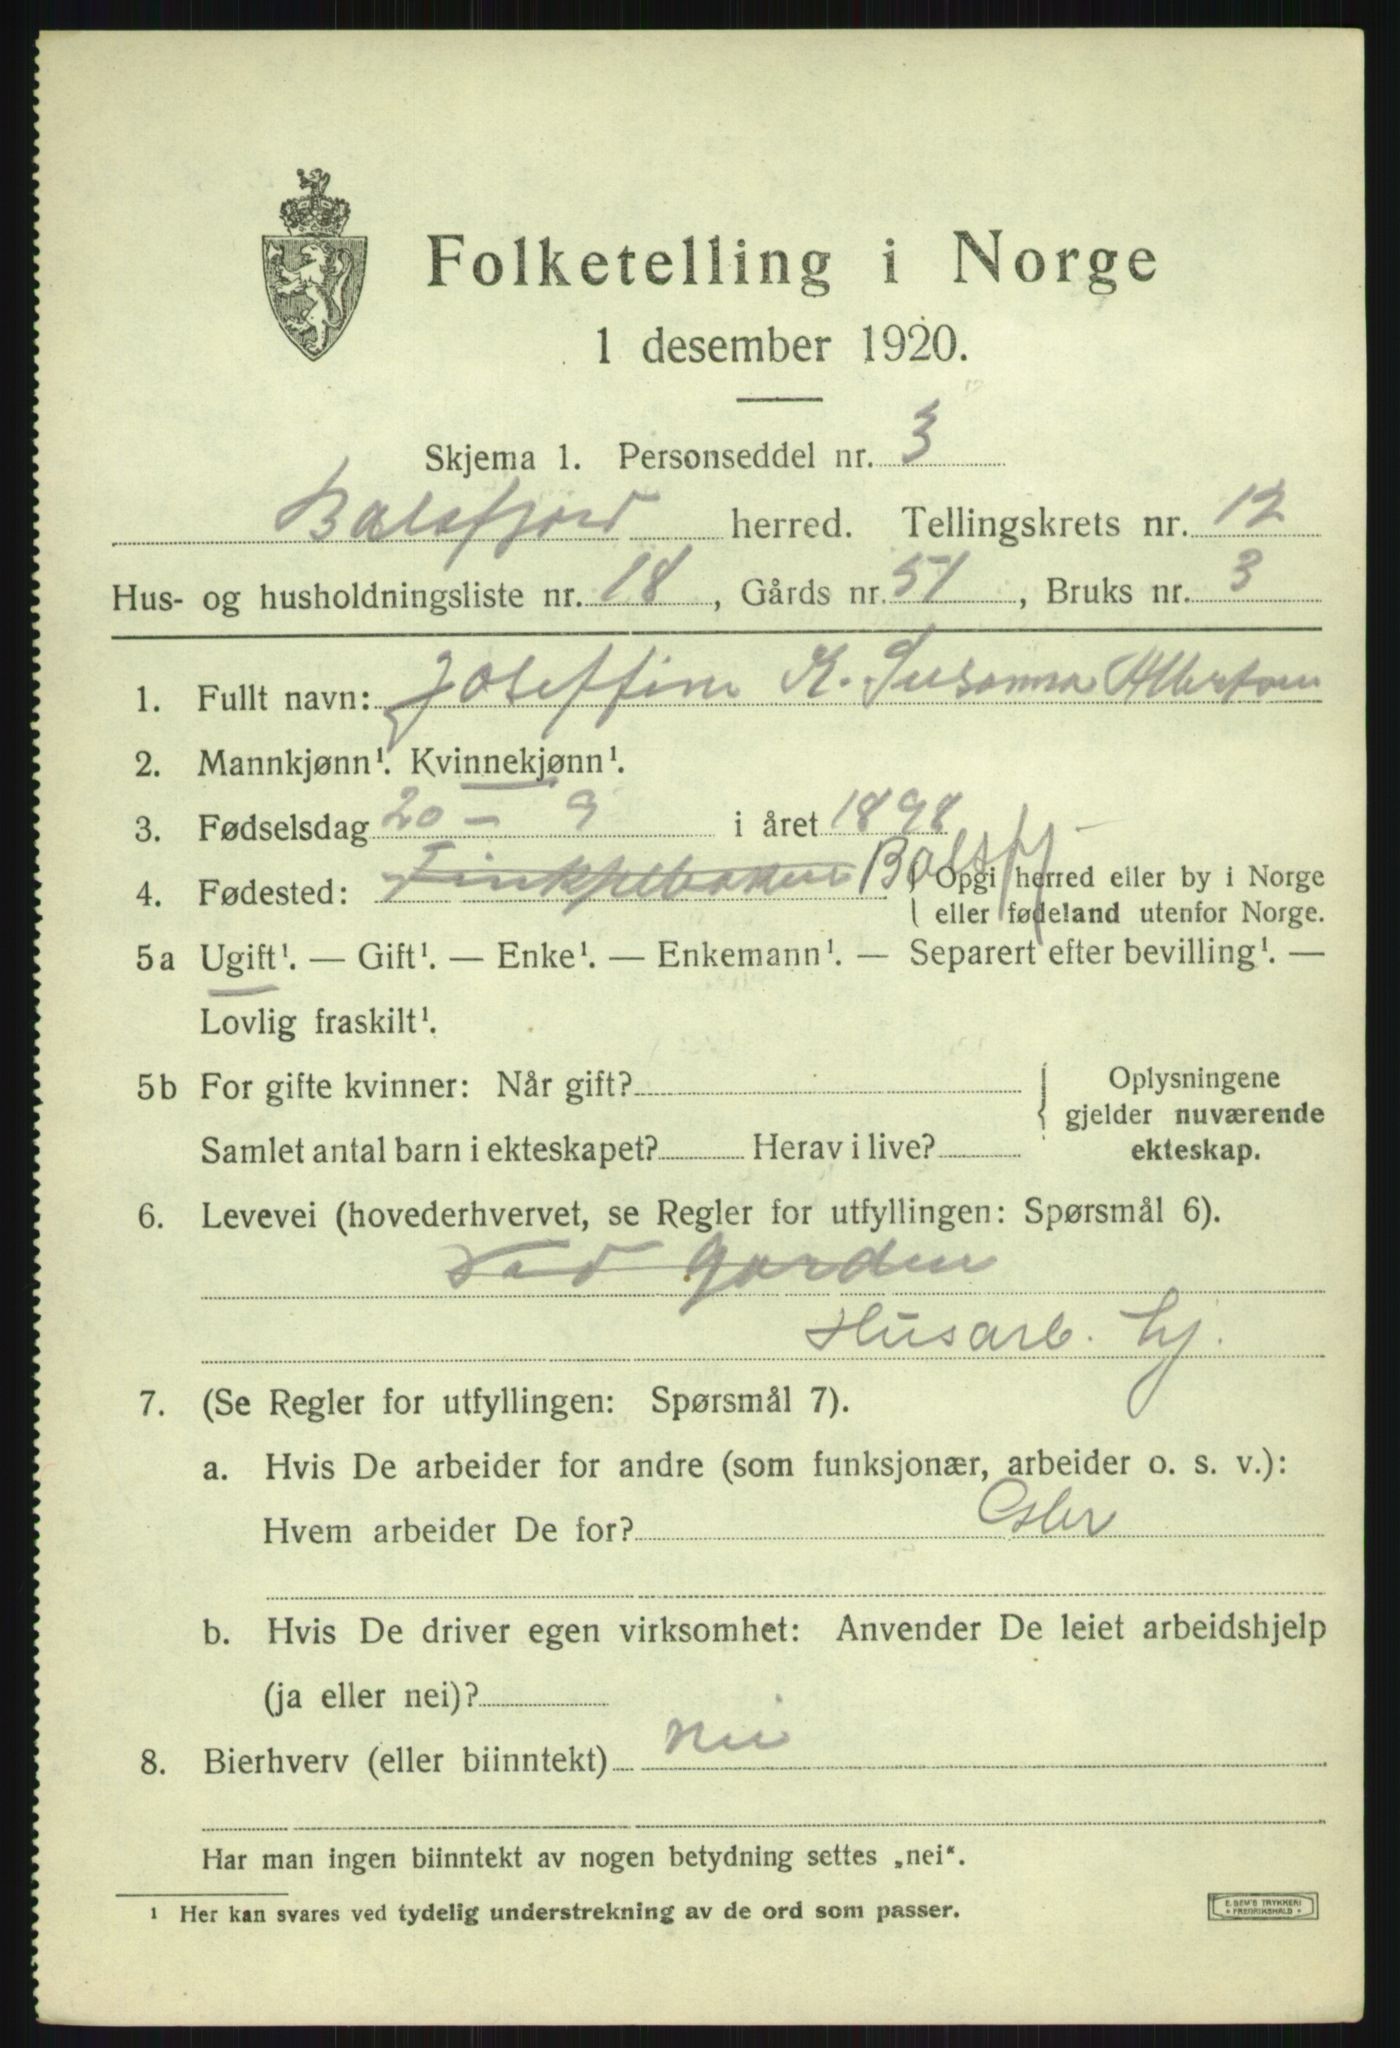 Folketelling i Norge
1 desember 1920.
Skjema 1. Personseddel nr. 3
Balsfjord herred. Tellingskrets nr. 12
Hus- og husholdningsliste nr. 18, Gårds nr. 51, Bruks nr. 3
1. Fullt navn: Joseffine K. Susanna Albertsen
2. Mannkjønn¹. Kvinnekjønn¹.
3. Fødselsdag 20 - 9 i året 1898
4. Fødested: Balsfj Opgi herred eller by i Norge
eller fødeland utenfor Norge.
5a Ugift¹. — Gift¹. — Enke¹. — Enkemann¹. — Separert efter bevilling¹. —
Lovlig fraskilt¹.
5b For gifte kvinner: Når gift? Oplysningene
gjelder nuværende
Samlet antal barn i ekteskapet? Herav i live? ekteskap.
6. Levevei (hovederhvervet, se Regler for utfyllingen: Spørsmål 6).
Ved Garden
Husarb. hj.
7. (Se Regler for utfyllingen: Spørsmål 7).
a. Hvis De arbeider for andre (som funksjonær, arbeider o. s. v.):
Hvem arbeider De for?
b. Hvis De driver egen virksomhet: Anvender De leiet arbeidshjelp
(ja eller nei)?
8. Bierhverv (eller biinntekt) nei
Har man ingen biinntekt av nogen betydning settes „nei“.
¹ Her kan svares ved tydelig understrekning av de ord som passer.
E. SEM'S TRYKKERI
FREDRIKSHALD